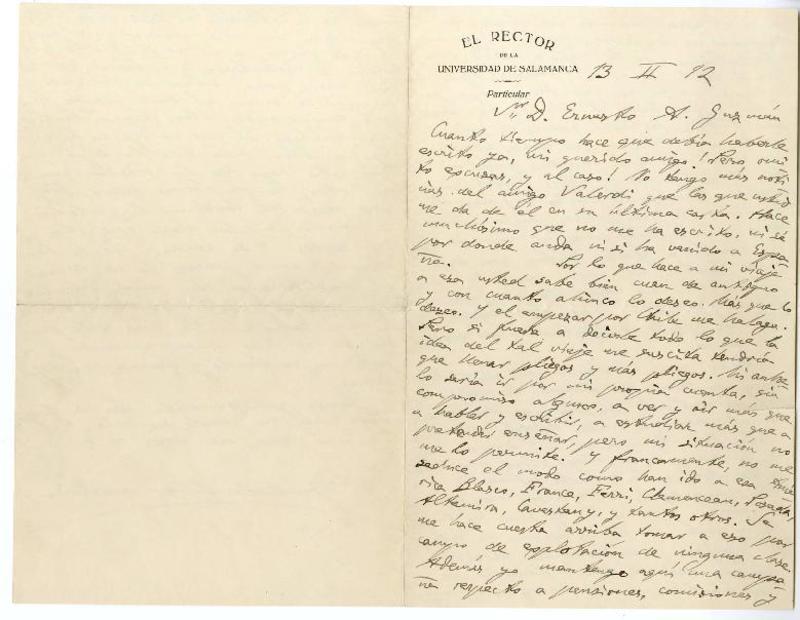 EL RECTOR
DE LA
UNIVERSIDAD DE SALAMANCA
13 II 12
Particular
Sr. D. Ernesto A. Guzmán
Cuanto tiempo hace que debía haberle
escrito ya, mi querido amigo! Pero omi
to escusas, y al caso! No tengo más noti
cias del amigo Valerdi que las que usted
me da de él en su última carta. Hace
muchísimo que no me ha escrito, ni sé
por donde anda ni si ha venido a Espa
ña. Por lo que hace a mi viaje
a esa usted sabe bien cuan de antiguo
y con cuanto ahinco lo deseo. Más que lo
deseo. Y el empezar por Chile me halaga.
Pero si fuera a decirle todo lo que la
idea del tal viaje me suscita tendría
que llenar pliegos y más pliegos. Mi
lo sería ir por mi propia cuenta, sin
compromiso alguno, a ver y oir más que
a hablar y escribir, a estudiar más que a
pretender enseñar, pero mi situación no
me lo permite. Y francamente, no me
seduce el modo como han ido a esa Amé
rica Blasco, France, Ferri, Clemenceau, Posada,
Altamira, Cavestany, y tantos otros. Se
me hace cuesta arriba tomar a eso por
campo de esplotación de ninguna clase.
Además yo mantengo aquí una campa
ña respecto a pensiones, comisiones y